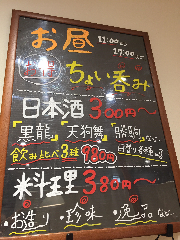 お昼 11:00より 17:00まで
ちょい呑み
日本酒 300円〜
「黒龍」「天狗舞」「勝駒」など…
飲み比べ3種 980円
米斗王里 380円〜
・お造り・珍味・逸品など